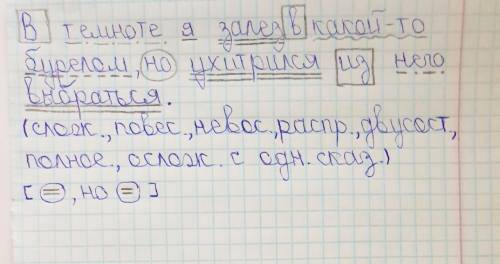 В темноте я залез в какой-то
бурелом, но ухитрился из него
выбраться.
(слож., повес., невос., распр., двусост.,
полное, ослож. с одн. сказ.)
[ = , но = ]